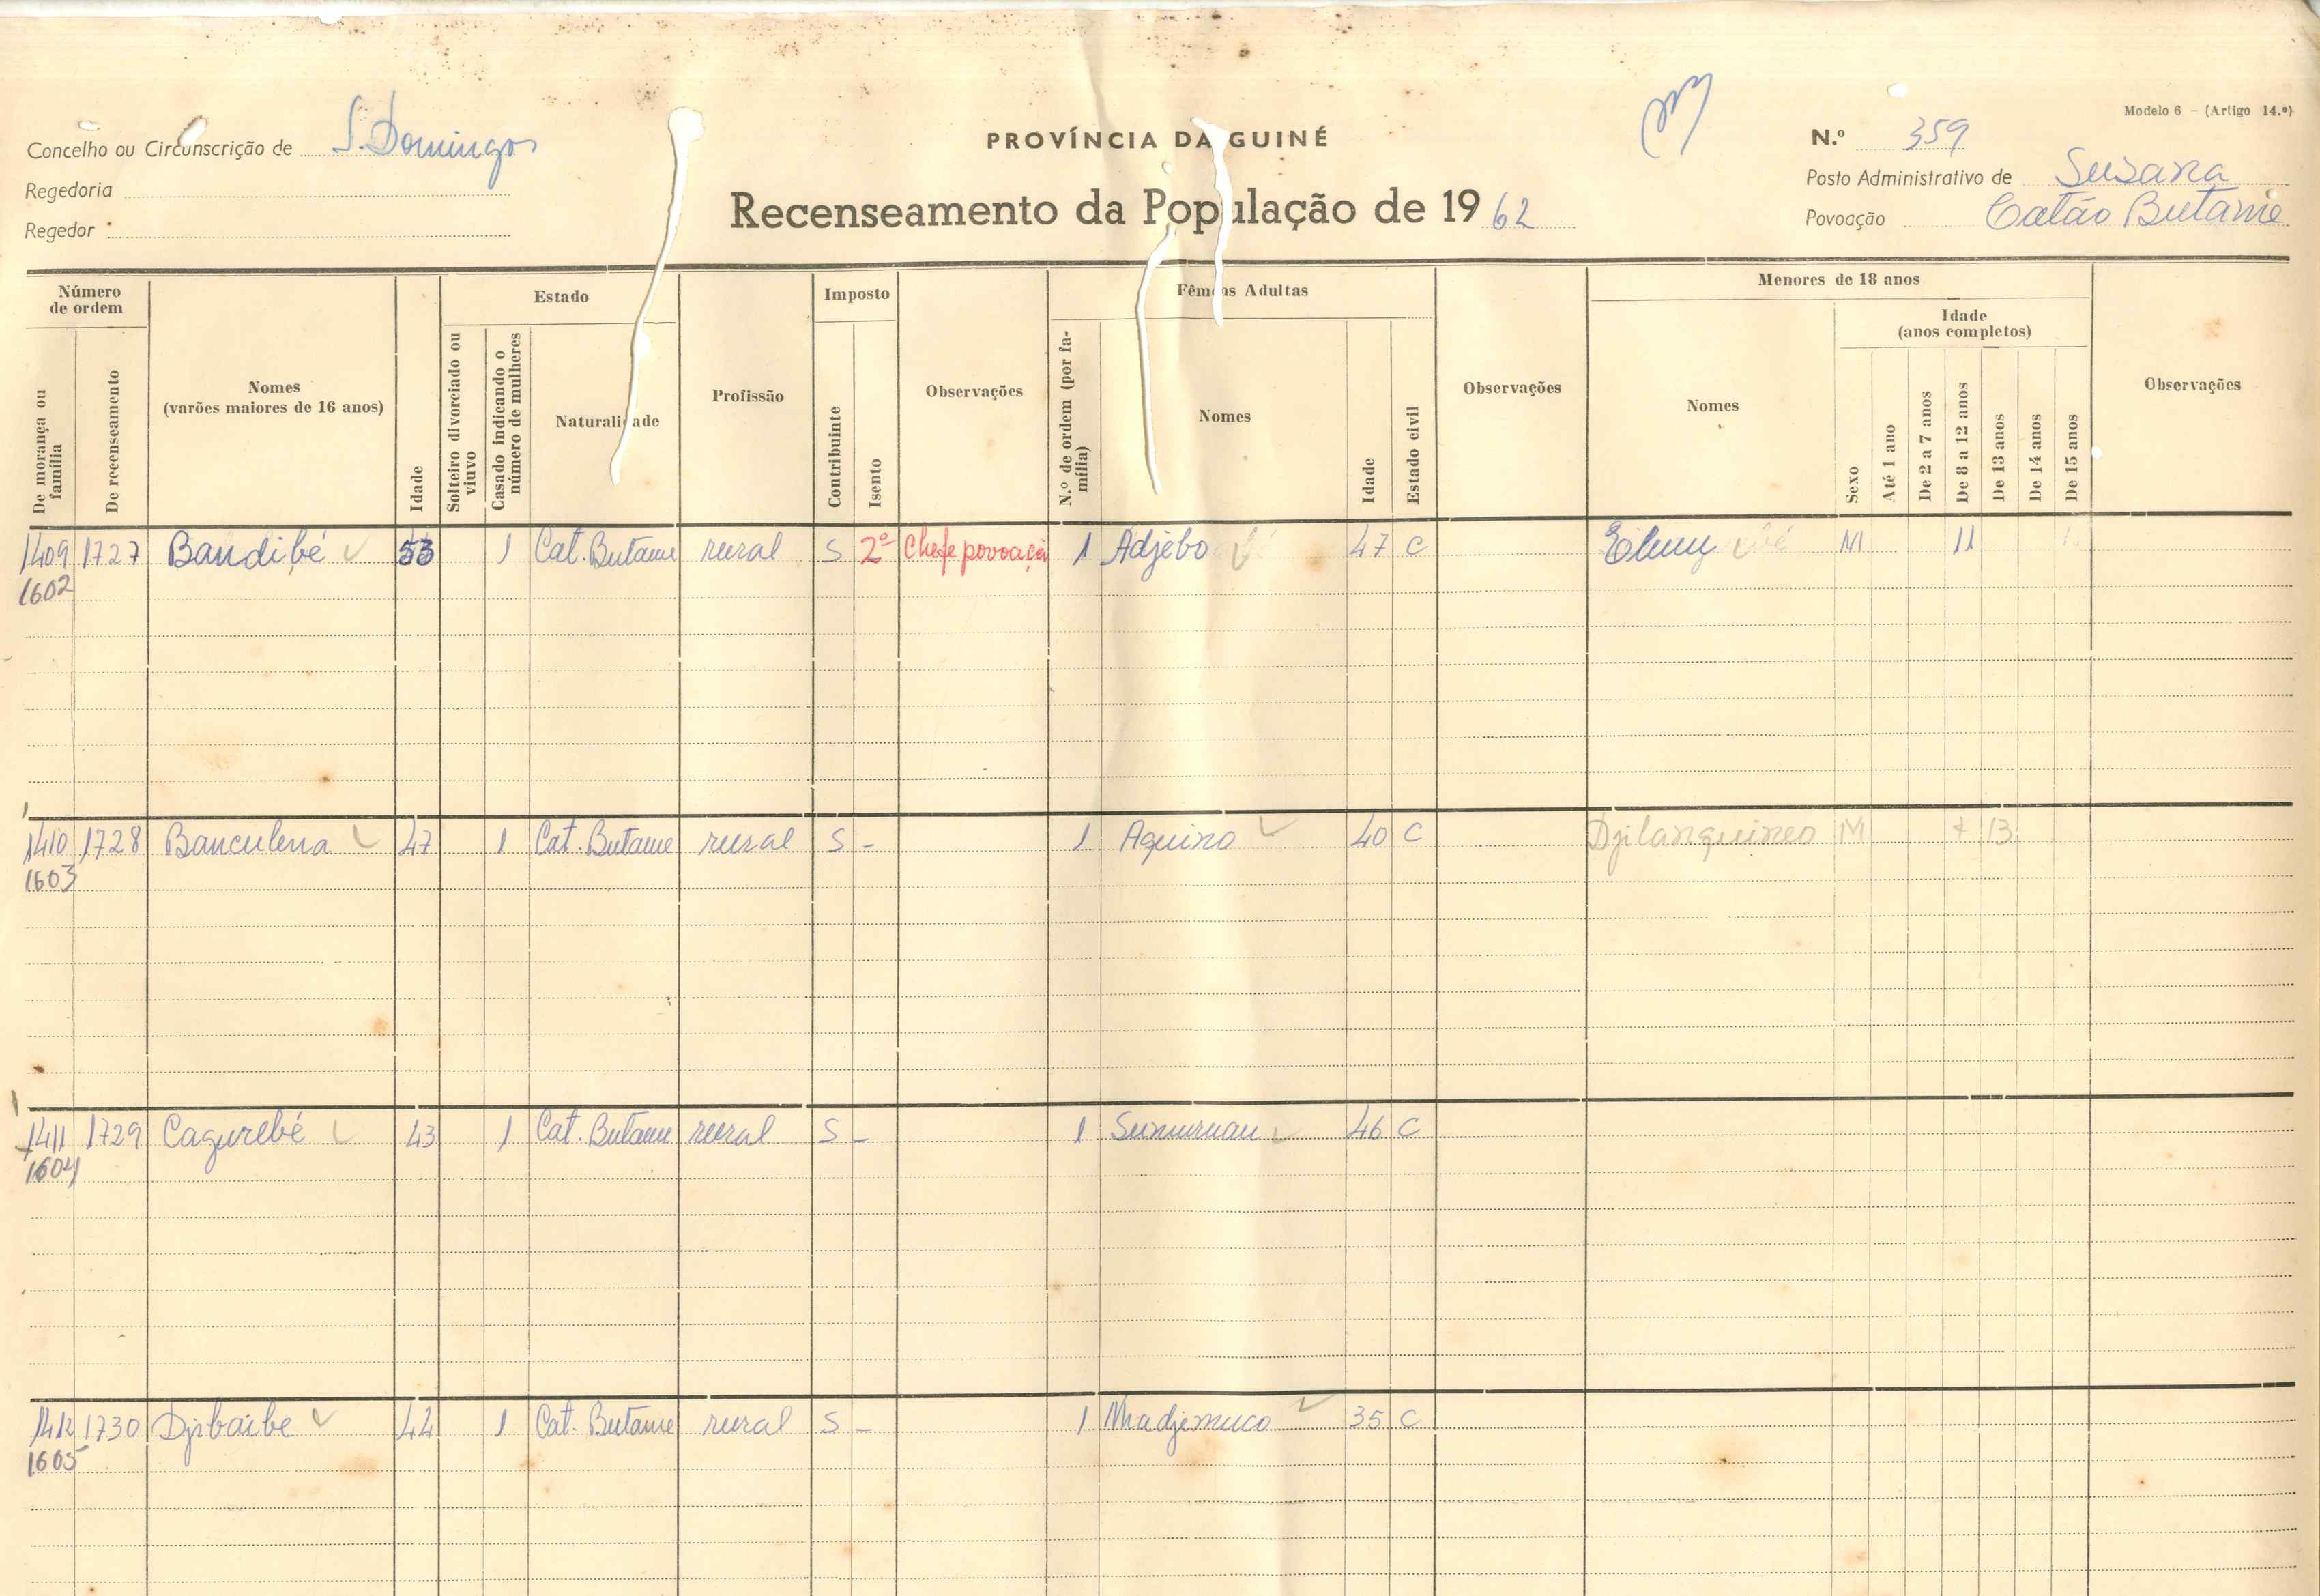 Modelo 6 - (Artigo 14.º)
Concelho ou Circunscrição de S. Domingos
PROVÍNCIA DA GUINÉ
N.º 359
Regedoria
Posto Administrativo de Susana
Regedor
Recenseamento da População de 1962
Povoação Catão Butame
Número de ordem
Estado
Imposto
Fêmeas Adultas
Menores de 18 anos
Idade (anos completos)
De morança ou família
De recenseamento
Nomes (varões maiores de 16 anos)
Idade
Solteiro divorciado ou viuvo
Casado indicando o número de mulheres
Naturalidade
Profissão
Contribuinte
Isento
Observações
N.º de ordem (por família)
Nomes
Idade
Estado civil
Observações
Nomes
Sexo
Até 1 ano
De 2 a 7 anos
De 8 a 12 anos
De 13 anos
De 14 anos
De 15 anos
Observações
1409 1727 Bandibé 53 1 Cat. Butame rural S 2º Chefe povoação 1 Adjebo 47 C M 11
1602
1410 1728 Banculena 47 1 Cat. Butame rural S - 1 Aquino 40 C Djilanquineo M + 13
1603
1411 1729 Cagurebé 43 1 Cat. Butame rural S - 1 46 C
1604
1412 1730 Djibaibe 44 1 Cat. Butame rural S - 1 Nhadjemuco 35 C
1605